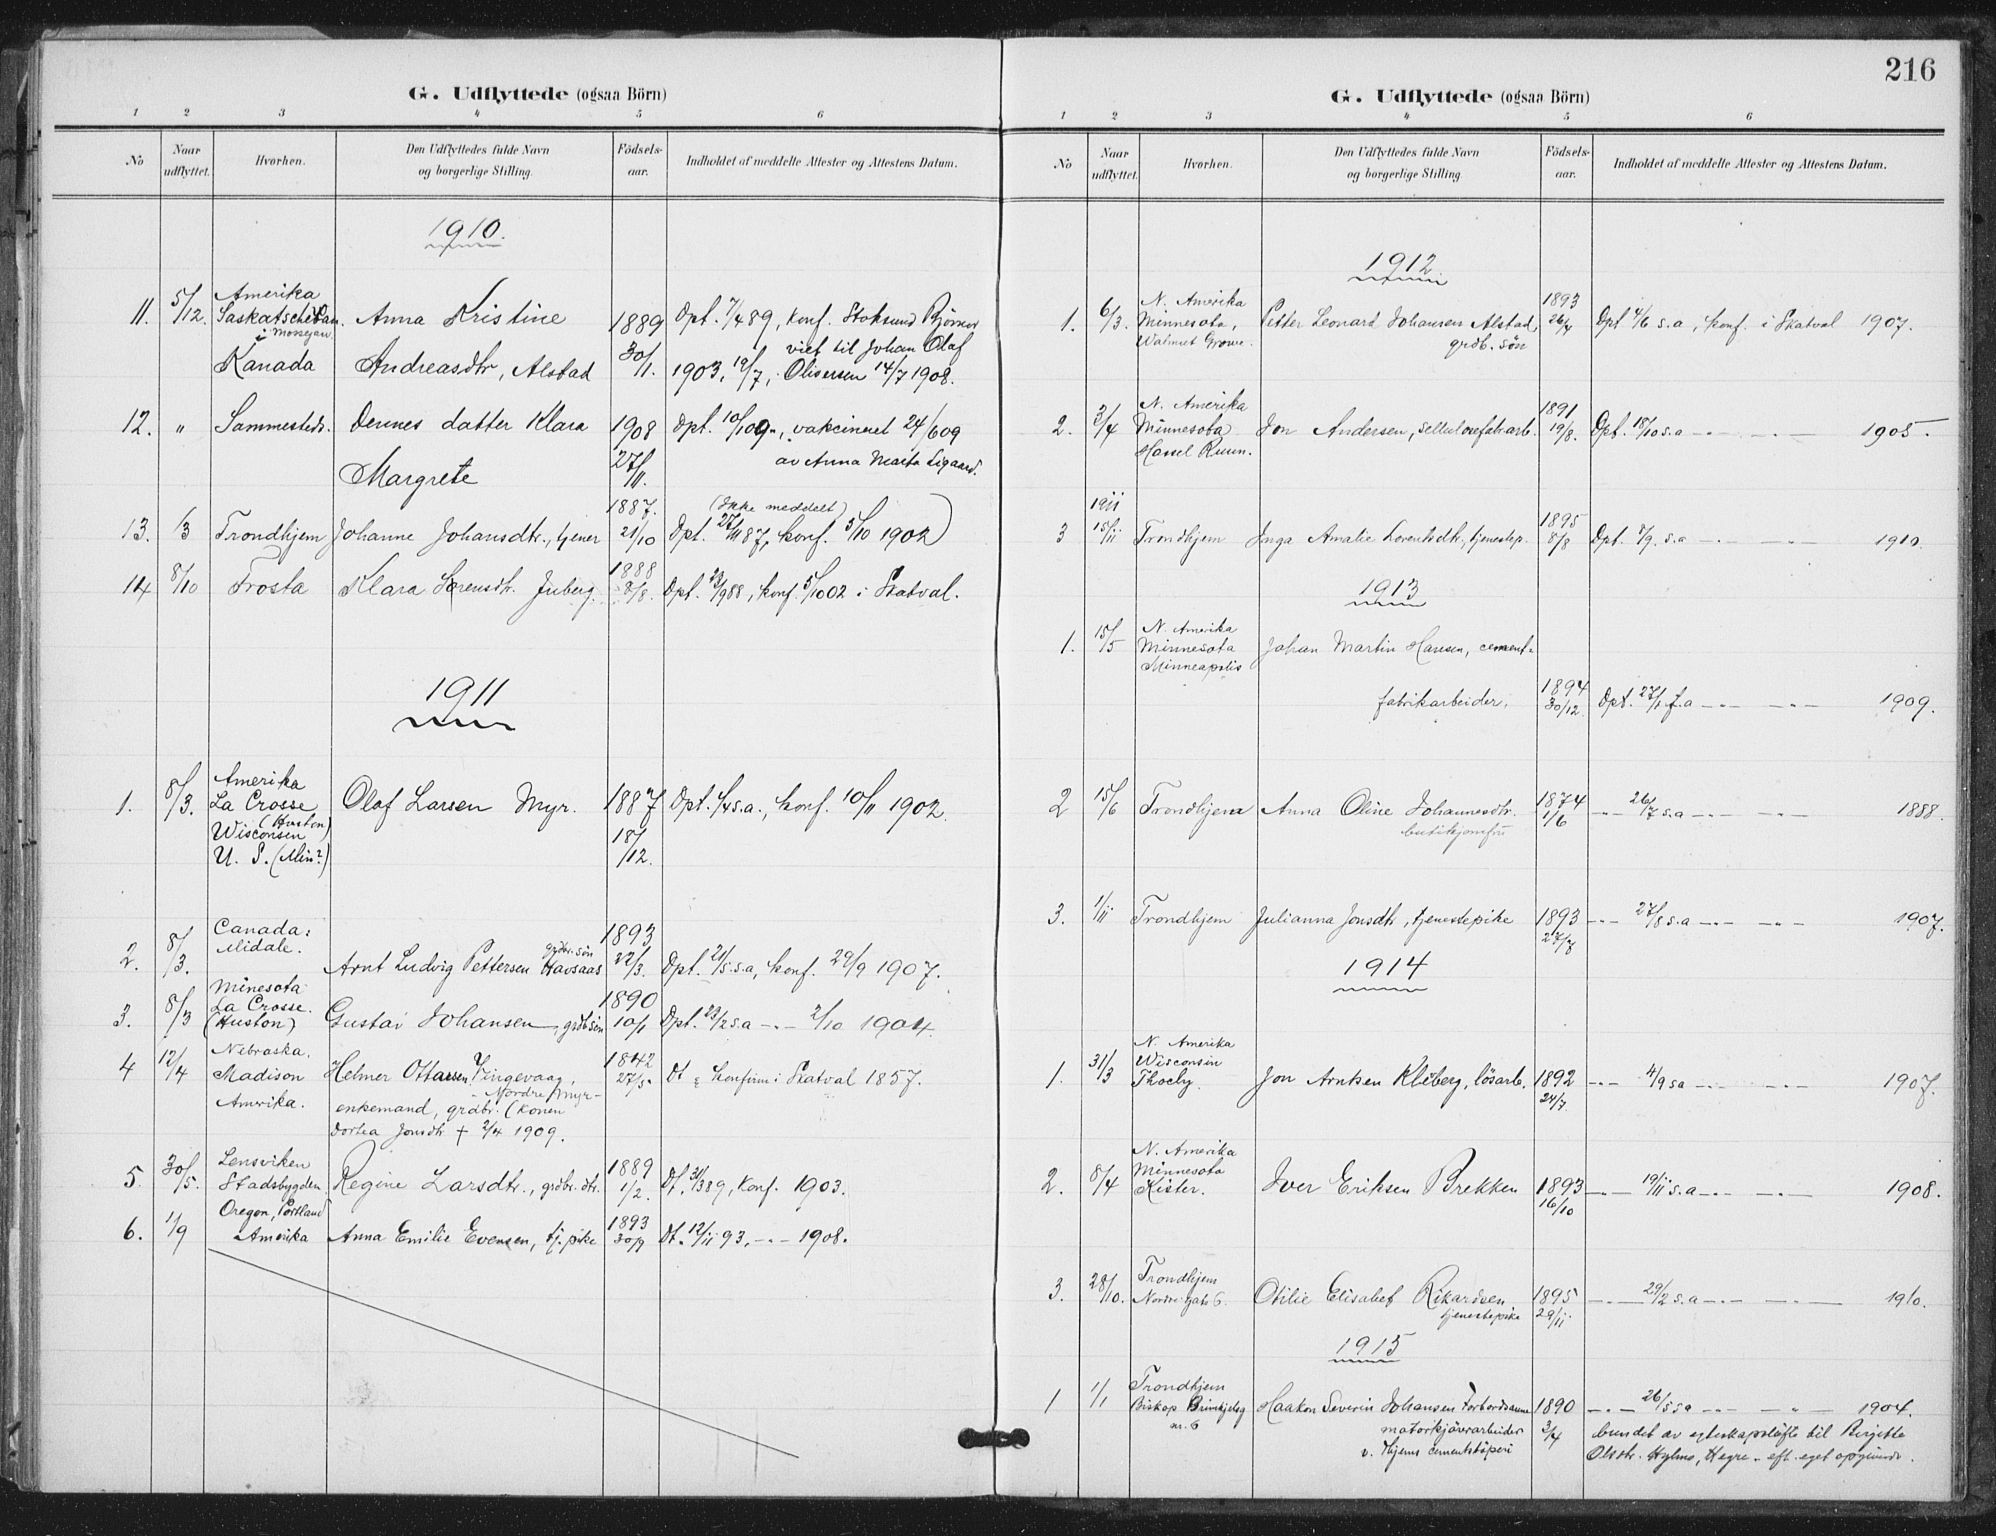 G. Udflyttede (ogsaa Börn)
1 2 3 4 5 6
No Naar udflyttet. Hvorhen. Den Udflyttedes fulde Navn og borgerlige Stilling. Födsels-aar. Indholdet af meddelte Attester og Attestens Datum.
1910.
Amerika
11. 5/12. Saskatschevan. Anna Kristine 1889 Dpt. 7/4 89, konf. Stoksund
i
Kanada Andreasdtr, Alstad 30/1. 1903, 12/7, Oliversen 14/7 1908.
viet til Johan Olaf
12. " Sammesteds. Dennes datter Klara 1908 Dpt. 10/1 09, vakcineret 24/6 09
Margrete 27/11. av Anna Marta Ligaard.
1887. (Ikke meddelt)
13. 1/3 Trondhjem Johanne Johansdtr., tjener 21/10 Dpt. 27/11 87, konf. 5/10 1902)
1888
14 8/10 Frosta Klara Lorensdtr. Juberg. 8/8. Dpt. 23/9 88, konf. 5/10 02 i Skatval.
1911
Amerika
1. 8/3. La Crosse Olaf Larsen Myr. 1887 Dpt. 1/4 s.a., konf. 10/11 1902.
(Huston)
Wisconsin 18/12.
U. S. (Min?)
Canada: 1893
Midale. grdbr. sön
2. 8/3. Arnt Ludvig Pettersen Havsaas 22/3. Dpt. 21/5 s.a, konf. 29/9 1907.
Minesota 1890
La Crosse.
3. 8/3 (Huston) Gustav Johansen, grdb sön 10/1 Dpt. 23/2 s.a -"- 2/10 1904.
Nebraska. 1842
4 12/4 Madison Helmer Ottarsen Vingevaag, 27/5. Dt & konfirm i Skatval 1857.
- Nordre Myr -
Amerika. enkemand, grdbr. (Konen
Dortea Jonsdtr. + 2/4 1909.
Lensviken 1889
5. 30/5. Stadsbygden Regine Larsdtr., grdbr. dtr. 1/2. Dt. 31/3 89, konf. 1903.
Oregon, Portland 1893
6. 1/9 Amerika Anna Emilie Evensen, tj. pike 30/9 Dt. 12/11 93, -"- 1908.
216
G. Udflyttede (ogsaa Börn)
1 2 3 4 5 6
No Naar udflyttet. Hvorhen. Den Udflyttedes fulde Navn og borgerlige Stilling. Födsels-aar. Indholdet af meddelte Attester og Attestens Datum.
1912
N. Amerika 1893
1. 6/3. Minnesota, Petter Leonard Johansen Alstad, 26/4 Dpt 4/6 s.a, konf. i Skatval 1907.
Walnut Growe. grdb. sön
N. Amerika 1891
2. 3/4 Minnesota Jon Andersen, sellulosefabrarb. 19/8. Dpt. 18/10 s.a -"- -"- 1905.
Hassel Ruun.
1911 1895
3 15/11 Trondhjem Inga Amalie Lorentsdtr., tjenestep. 8/8 Dpt. 8/9. s.a -"- -"- 1910.
1913
N. Amerika
1. 15/5 Minnesota Johan Martin Hansen, cement-
Minneapolis
fabrikarbeider, 1894 30/12 Dpt. 27/1 f.a -"- -"- 1909.
2 15/6 Trondhjem Anna Oline Johannesdtr. 1874 1/6 -"- 26/7 s.a -"- -"- 1888.
butikjomfru
3. 1/11 Trondhjem Julianna Jonsdtr, tjenestepike 1893 -"- 27/8 s.a -"- -"- 1907.
1914
N. Amerika
31/3 Wisconsin
1. Thoeby. Jon Arntsen Kleberg, lösarb. 1892 -"- 4/9 s.a -"- -"- 1907.
24/7
N. Amerika
Minnesota
2. 8/4 Kister. Iver Eriksen Brekken 1893 -"- 19/11 s.a -"- -"- 1908.
16/10
Trondhjem
3. 28/10. Nordregate 6. Otilie Elisabet Rikardsen 1895 -"- 29/2 s.a -"- -"- 1910.
tjenestepike 29/11
1915
Trondhjem
1 1/1 Biskop Haakon Severin Johansen Forbordsaune 1890 -"- 26/5 s.a -"- -"- 1904.
nr. 6 3/4 bundet av egteskapslöfte til Birgitte
v. Thjems cementstöperi Olsdtr. Hylmo, Hegre - eft. eget opgivende.